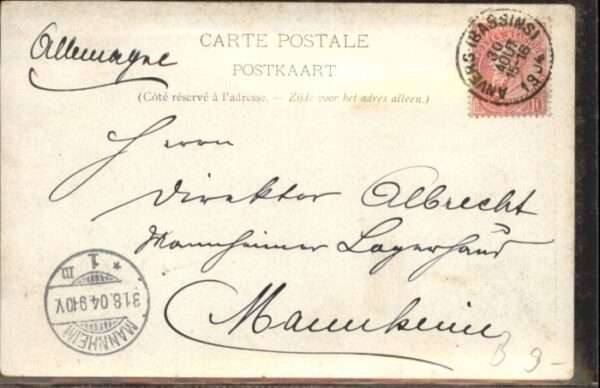 Allemagne
CARTE POSTALE
POSTKAART
(Côté réservé à l'adresse. — Zijde voor het adres alleen.)
ANVERS (BASSINS)
30
AOUT
15-16
1904
10
Herrn
Direktor Albrecht
Mannheimer Lagerhaus
Mannheim
MANNHEIM
31.8.04.9-10V.
* 1 m
B 9-